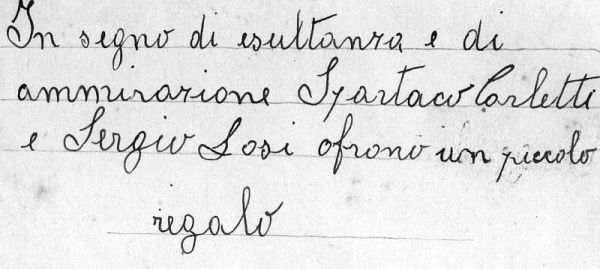 In segno di esultanza e di
ammirazione Spartaco Carletti
e Sergio Losi ofrono un piccolo
regalo